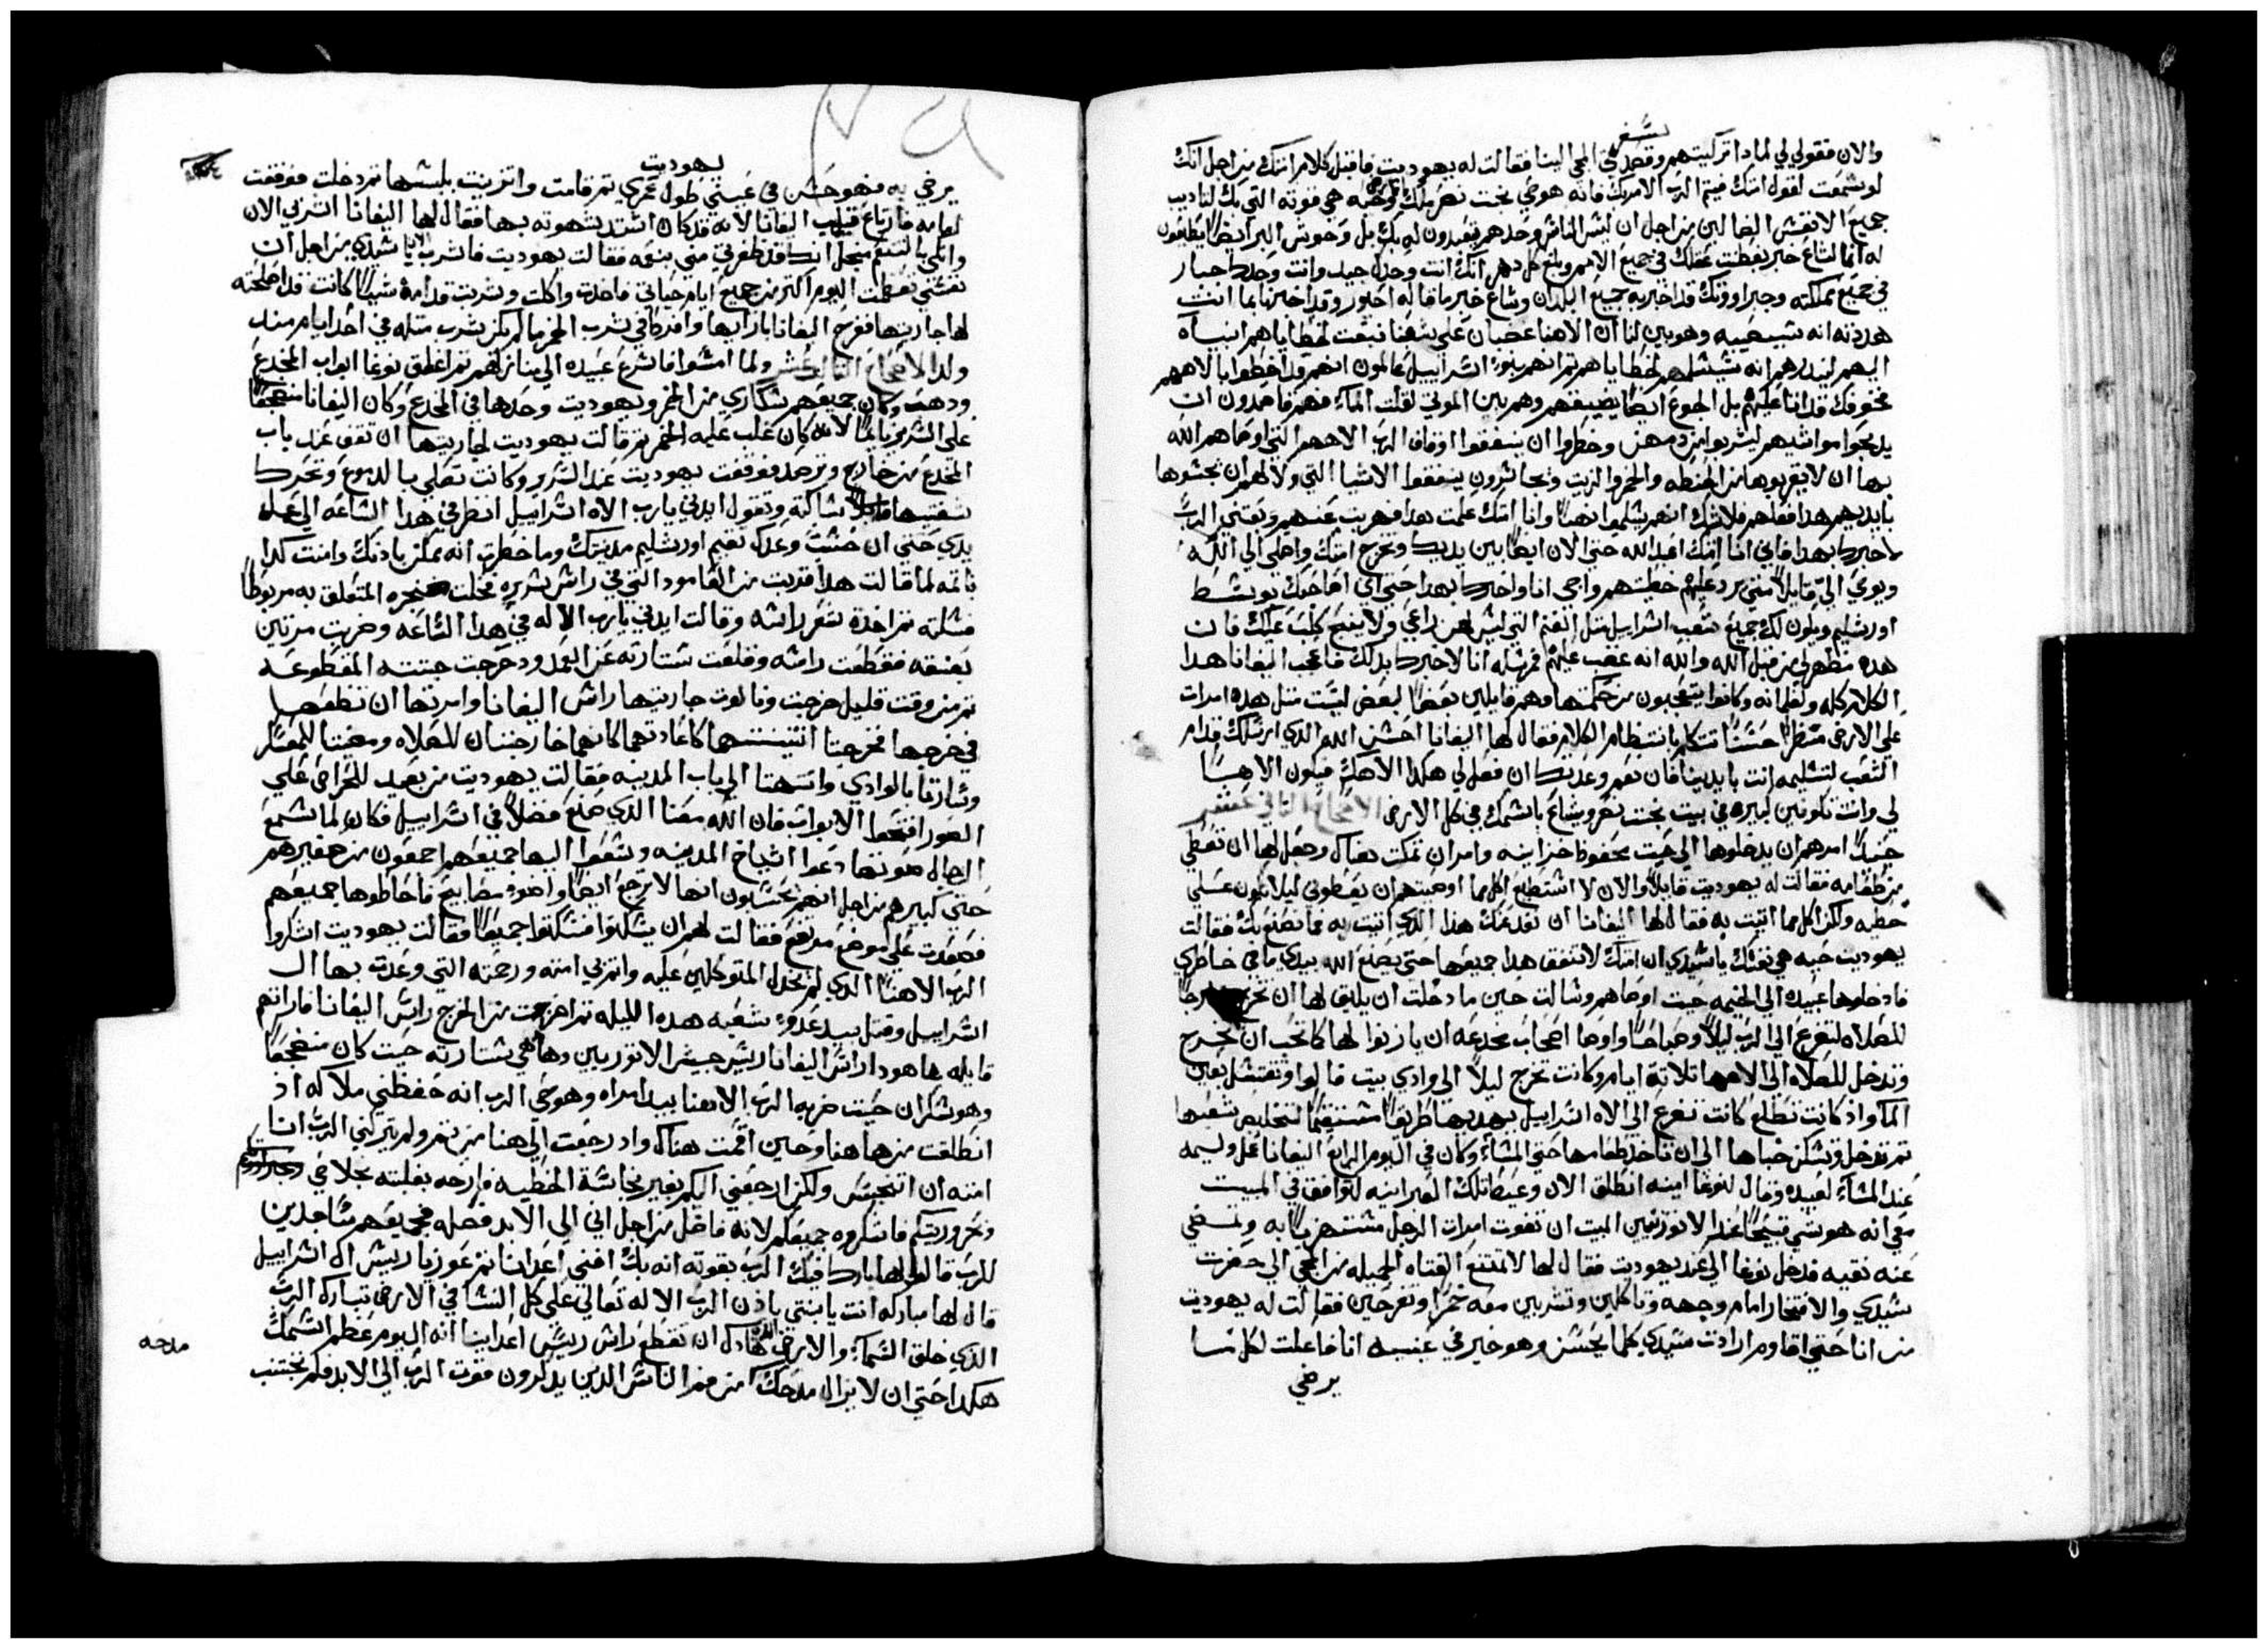 سفر
والان فقولي لي لماذا تركتيهم وقصدتي المجي الينا فقالت له يهوديت فاقبل كلام امتك من اجل انك
لو سمعت لقول امتك فيتم الرب الامر بك فانه هو حي بخت نصر ملك الارض وحيه هي قوته التي بك لتاديب
جميع الانفس الضالين من اجل ان ليس الناس وحدهم يتعبدون له بك بل وحوش البر ايضا يطيعون
له انما لشاع خبر يقظت عقلك في جميع الامم وبلغ كل دهر انك انت وحدك جيد وانت وحدك جبار
في جميع مملكته وخبر اوريتك قد اخبر به جميع البلدان وشاع خبر ما قاله احيور وقد اخبرنا بما انت
هددته انه تصيبه وهو بين لنا ان الاهنا غضبان على شعبنا بسبب خطاياهم انبياه
اليهم لينذرهم انه سيسلمهم لخطاياهم ثم انهم بنو اسراييل عالمون انهم قد اخطوا بالاههم
فخوفك قد اتا عليهم بل الجوع ايضا يضيفهم وهم بين الموتى لقلت الماء فهم قاصدون ان
يدبحوا مواشيهم ليشربوا من دمهن وخطروا ان ينفقوا اوقاف الرب الاههم التي اوصاهم الله
بها ان لا يقربوها من الحنطه والخمر والزيت وتجاسرون ينفقوا الاشيا التي ولا لهم ان يجسوها
بايديهم هذا فعلهم فلا شك انهم يسلموا نهبا وانا امتك علمت هذا فهربت عنهم وبعثني الرب
لاخبرك بهذا فاني انا امتك اعبد الله حتى الان ايضا بين يديك وتخرج امتك واصلي الي الله
ويوحي الي قايلا متي يرد عليهم خطيتهم واجي انا واخبرك بهذا حتي اني اصاحبك بوسط
اورشليم ويكون لك جميع شعب اسراييل مثل الغنم التي ليس لهن راعي ولا ينبح كلب عليك فان
هذه تظهر لي من قبل الله والله انه غضب عليهم فرسله انا لاخبرك بذلك فاعجب اليفانا هذا
الكلام كله وغلمانه وكانوا يتعجبون من حكمتها وهم قايلين بعضا لبعض ليست مثل هذه امراة
علي الارض منظرا حسنا تتكلم بانتظام الكلام فقال لها اليفانا احسن الله الذي ارسلك قدام
الشعب لتسليمه انت بايدينا فان نعم وعديك ان فعل لي هكذا الاهك فيكون الاها
لي وانت تكونين كبيره في بيت بخت نصر ويشاع باسمك في كل الارض الاصحاح الثاني عشر
حينيذ امرهم ان يدخلوها الي حيث محفوظ خزاينه وامر ان تمكث هناك وجعل لها ان تعطي
من طعامه فقالت له يهوديت قايلة والان لا استطيع اكل مما اوصيتهم ان يعطوني ليلا تكون علي
خطيه ولكن اكل مما اتيت به فقال لها اليفانا ان نفد عنك هذا الذي اتيت به فما نصنع بك فقالت
يهوديت حيه هي نفسك يا سيدي ان امتك لا تنفق هذا جميعها حتى يصنع الله بيدي ما في خاطري
فادخلوها عبيده الي الخيمه حيث اوصاهم وسالت حين ما دخلت ان يطلق لها ان تخرج خارجا
للصلاه لتضرع الي الرب ليلا وصباحا واوصا اصحاب مخدعه ان ياذنوا لها كما تحب ان تخرج
وتدخل للصلاه الي الاهها ثلاثة ايام وكانت تخرج ليلا الي وادي بيت فالوا وتغتسل بعين
الما واذ كانت تطلع كانت تضرع الي الاه اسراييل بهديها طريقا مستقيما لتخليص شعبها
ثم تدخل وتسكن خباها الي ان تاخذ طعامها حتي المساء وكان في اليوم الرابع اليفانا عمل وليمه
عند المساء لعبيده وقال لبوغا امينه انطلق الان وعيط تلك العبرانيه لتوافق في المبيت
معي انه هو شي قبيحا عند الاثوريين البت ان تفوت امرات الرجل مستهزيا به وتمضي
عنه نقيه فدخل بوغا الي عند يهوديت فقال لها لا تمتنع الفتاه الجميله من المجي الي حضرت
سيدي والافتخار امام وجهه وتاكلين وتشربين معه خمرا وتفرحين فقالت له يهوديت
من انا حتي اقاوم ارادت سيدي كلما يحسن وهو خير في عينيه انا فاعلت لكل ما
يرضي
يهوديت
يرضي به فهو حسن في عيني طول عمري ثم قامت واتزينت بلبسها ثم دخلت فوقفت
امامه فارتاع قلب اليفانا لانه قد كان اشتد شهوته بها فقال لها اليفانا اشربي الان
واتكي بالتنعم من اجل انك قد ظفرتي مني بنعمه فقالت يهوديت فاشرب يا سيدي من اجل ان
نفسي تعظمت اليوم اكثر من جميع ايام حياتي فاخذت واكلت وشربت قدامه شيا كانت قد اصلحته
لها جاريتها ففرح اليفانا بارايها وافرط في شرب الخمر ما لم يكن شرب مثله في احد ايام منذ
ولد الاصحاح الثالث عشر ولما امسوا فاسرع عبيده الي منازلهم ثم اغلق بوغا ابواب المخدع
ودهب وكان جميعهم سكاري من الخمر ويهوديت وحدها في المخدع وكان اليفانا منضجعا
علي السرير نايما لانه كان غلب عليه الخمر ثم قالت يهوديت لجاريتها ان تقف عند باب
المخدع من خارج وترصد فوقفت يهوديت عند السرير وكانت تصلي بالدموع وتحرك
شفتيها قليلا ساكته وتقول ايدني يا رب الاه اسراييل انظر في هذا الساعه الي عمل
يدي حتي ان حسب وعدك تقيم اورشليم مدينتك وما خطرت انه يمكن باذنك وامنت كذا
نايمه لما قالت هذا قربت من العامود التي في راس سريره فحلت خنجره المتعلق به مربوطا
فسلته ثم اخدة شعر راسه وقالت ايدني يا رب الاله في هذا الساعه وضربت مرتين
بعنقه فقطعت راسه وقلعت ستارته عن العمد ودحرجت جتته المقطوعه
ثم من وقت قليل خرجت وناولوت جاريتها راس اليفانا وامرتها ان تضعها
في خرجها فخرجتا اثنتينهما كعادتهما كانهما خارجتان للصلاه ومضتا للمعسكر
وسارتا بالوادي وانتهتا الي باب المدينه فقالت يهوديت من بعيد للحراص علي
الصور افتحوا الابواب فان الله معنا الذي صنع فضلا في اسراييل فكان لما تسمع
الرجال صوتها دعوا اشياخ المدينه وسعوا اليها جميعهم اجمعون من صغيرهم
حتي كبيرهم من اجل انهم يحسبون انها لا ترجع ايضا واضوو مصابيح فاحاطوها جميعهم
فصعدت علي موضع مرتفع فقالت لهم ان يسكتوا فسكتوا جميعا فقالت يهوديت اشكروا
الرب الاهنا الذي لم يخدل المتوكلين عليه واتم بي امته ورحمته التي وعدت بها ال
اسراييل وقتل بيد عدو شعبه هذه الليله ثم اخرجت من الخرج راس اليفانا فاراتهم
قايله ها هوذا راس اليفانا رييس جيش الاتوريين وها هي ستارته حيث كان منضجعا
وهو سكران حيث ضربه الرب الاهنا بيد امراه وهو حي الرب انه حفظني ملاكه اذ
انطلقت من هاهنا وحين اقمت هناك واد رجعت الي هنا من ثم ولم يتركني الرب انا
امته ان اتنجس ولكن ارجعني اليكم بغير نجاسة الخطيه فارحه بغلبته بخلاصي
وتحروريتكم فاشكروه جميعكم لانه فاضل من اجل اني الي الابد فضله فجميعهم ساجدين
للرب قالوا لها بارك فيك الرب بقوته انه بك افني اعدانا ثم عوزيا رييس ال اسراييل
قال لها مباركه انت يا بنتي باذن الرب الاله تعالي علي كل النسا في الارض تبارك الرب
الذي خلق السماء والارض الذي هداك ان تقطع راس رييس اعداينا انه اليوم عظم اسمك
هكذا حتي ان لا يزال مدحك من فم الناس الدين يدكرون قوت الرب الي الابد فلم تجتنب
مدحه